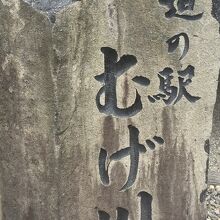 道の駅
むげ川